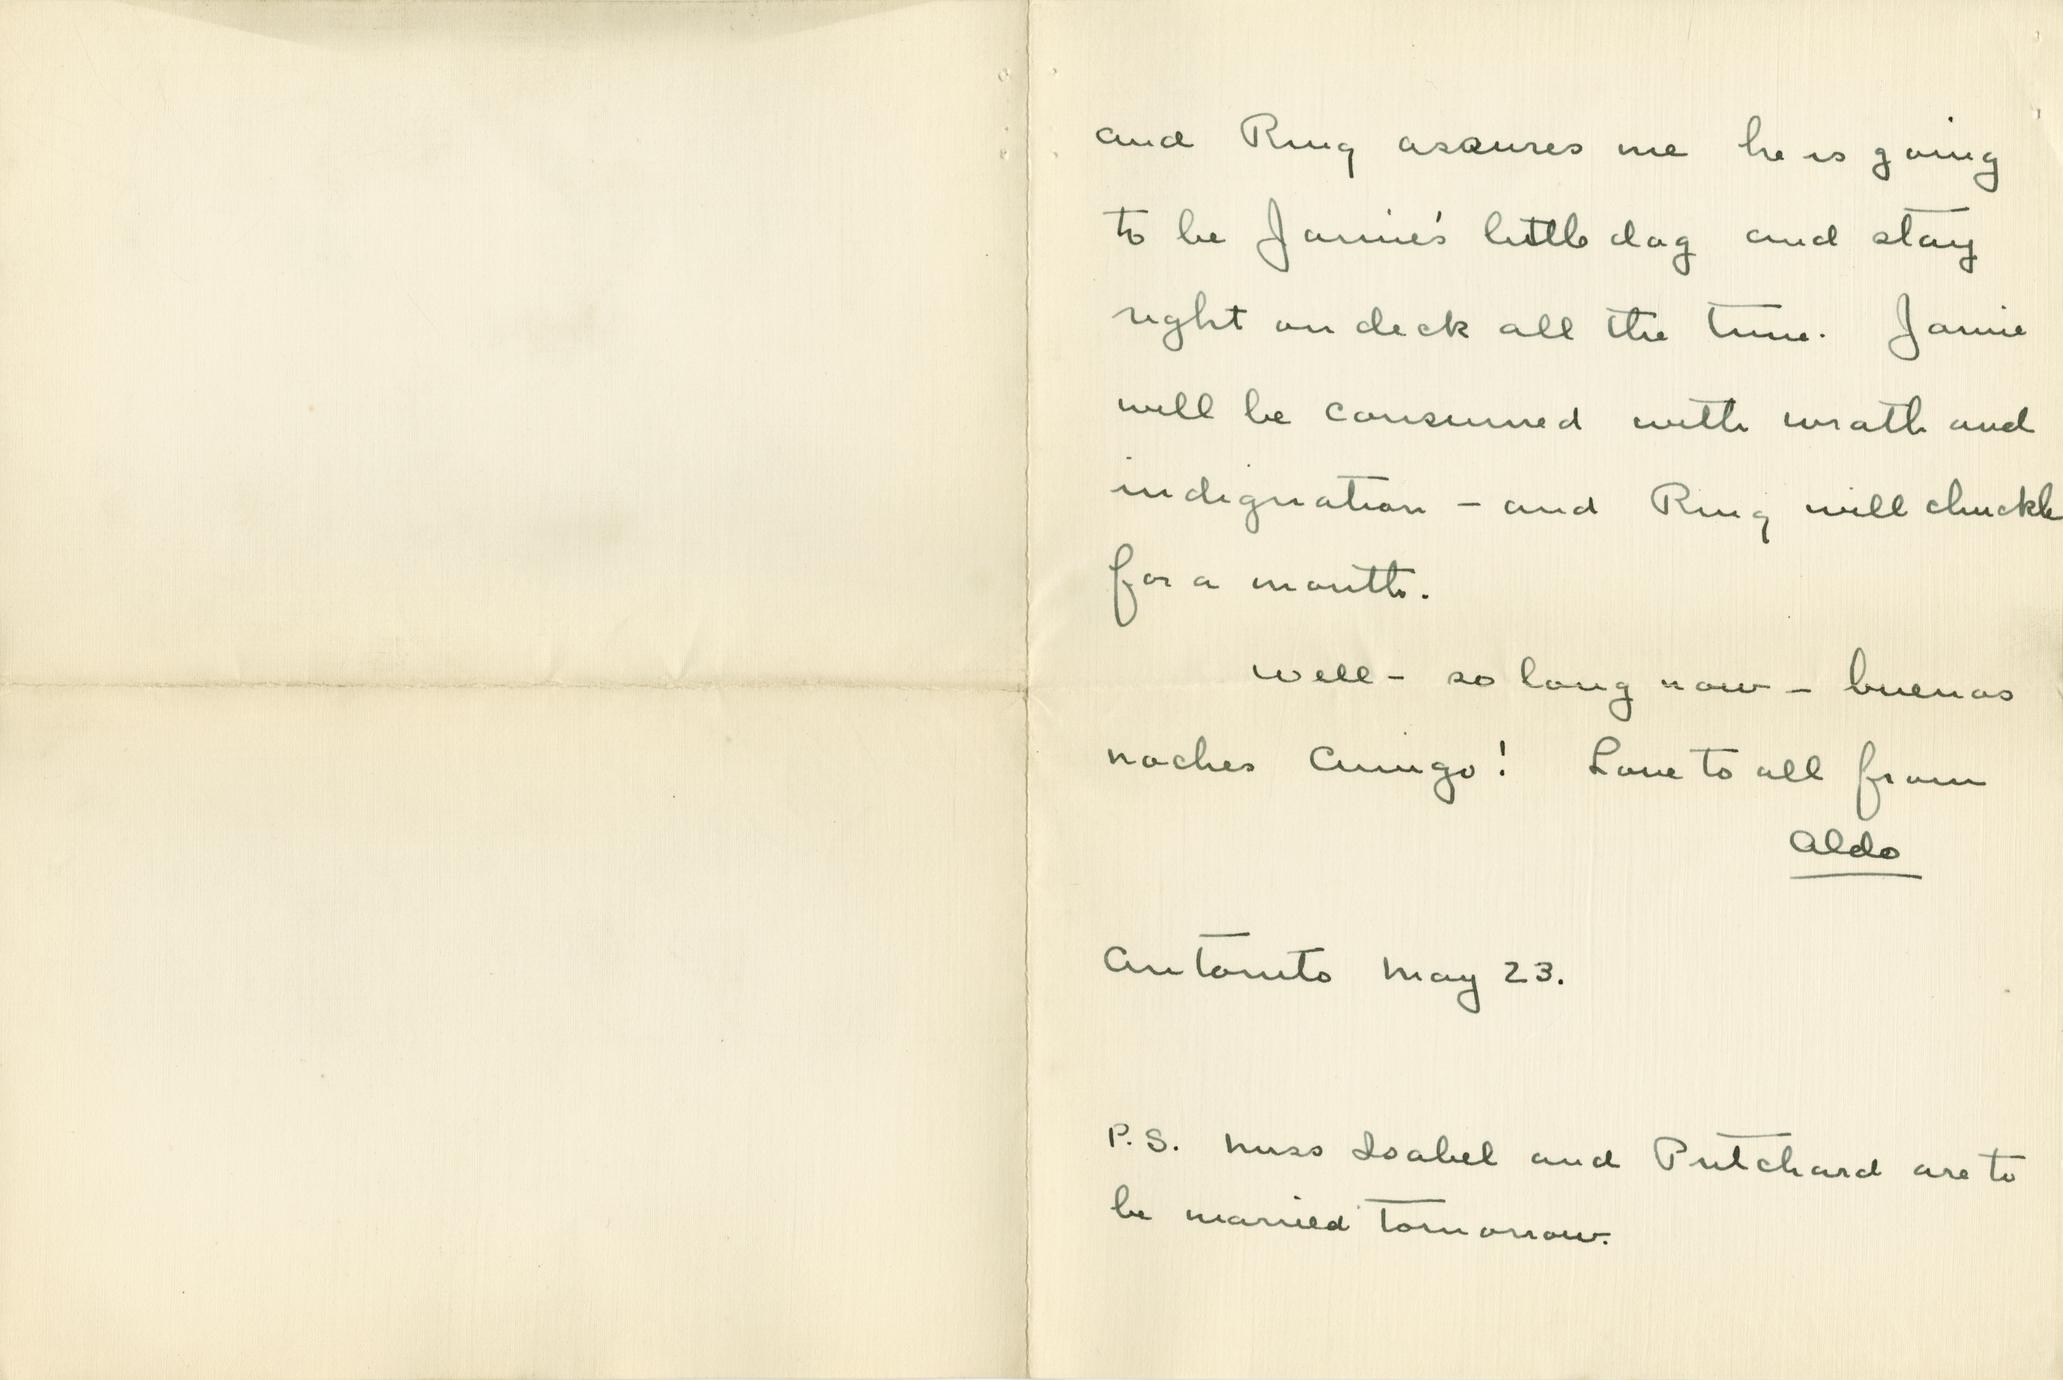 and Ring assures me he is going
to be Jamie's little dog and stay
right on deck all the time. Jamie
will be consumed with wrath and
indignation - and Ring will chuckle
for a month.
Well - so long now - buenas
noches Amigo! Love to all from
Aldo
Antonito May 23.
P.S. Miss Isabel and Pritchard are to
be married tomorrow.